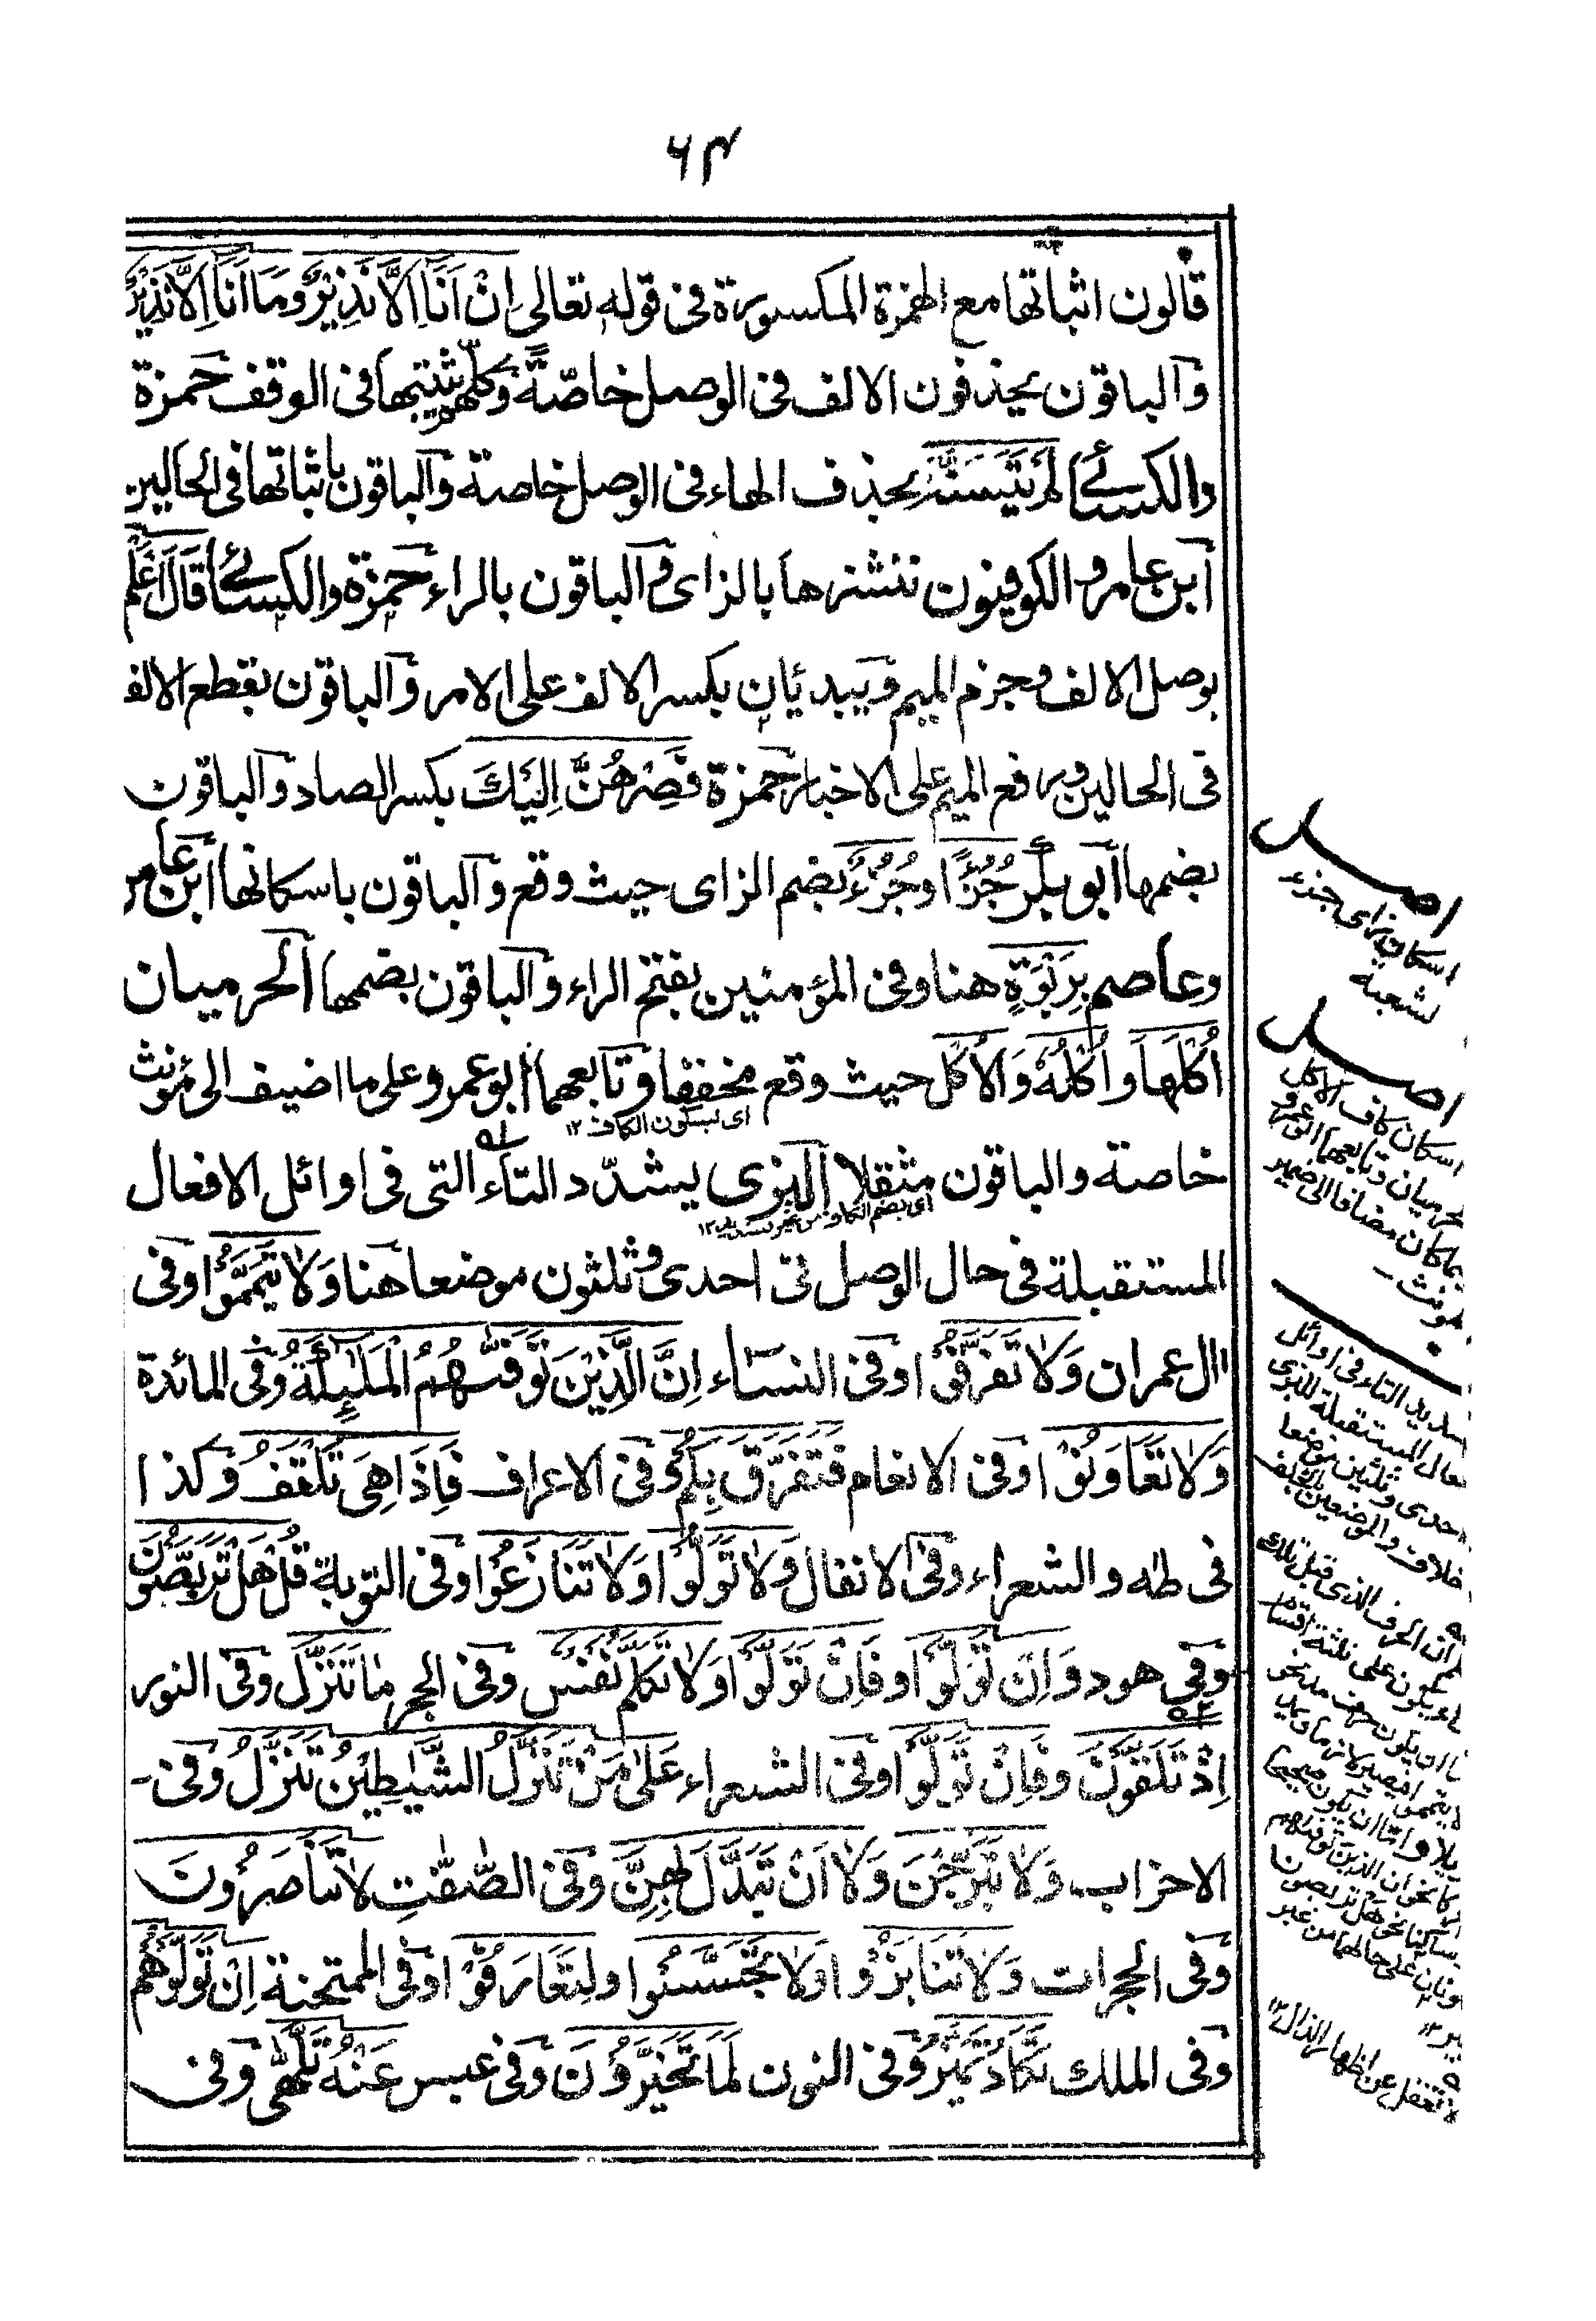 ۶۴
قالون اثباتها مع الهمزة المكسورة فى قوله تعالى اِنْ اَنَا اِلَّا نَذِيْرٌ وما اَنَا اِلَّا نَذِيْرٌ
والباقون يحذفون الالف فى الوصل خاصّةً وكلهم يثبتها فى الوقف حمزة
والكسائے لَمْ يَتَسَنَّهْ بحذف الهاء فى الوصل خاصة والباقون باثباتها فى الحالين
ابن عامر والكوفيون ننشزها بالزاى والباقون بالراء حمزة والكسائے قَالَ اعْلَمْ
بوصل الالف وجزم الميم ويبدئان بكسر الالف على الامر والباقون بقطع الالف
فى الحالين وبرفع الميم على الاخبار حمزة فَصِرْهُنَّ اِلَيْكَ بكسر الصاد والباقون
بضمها ابو بكر جُزُءًا وجُزُءٌ بضم الزاى حيث وقع والباقون باسكانها ابن عامر
وعاصم بِرَبْوَةٍ هنا وفى المؤمنين بفتح الراء والباقون بضمها الحرميان
اُكْلَهَا وَاُكْلُهٗ وَالْاُكْل حيث وقع مخففا وتابعهما ابو عمرو على ما اضيف الى مؤنث
اى بسكون الكاف ١٢
خاصة والباقون مثقلا البزى يشدّد التاء التى فى اوائل الافعال
اى بضم الكاف من غير تشديد ١٢
المستقبلة فى حال الوصل فى احدى وثلثون موضعا هنا وَلَا تَيَمَّمُوْا وفى
اٰل عمران وَلَا تَفَرَّقُوْا وفى النساء اِنَّ الَّذِيْنَ تَوَفّٰىهُمُ الْمَلٰٓئِكَةُ وفى المائدة
وَلَا تَعَاوَنُوْا وفى الانعام فَتَفَرَّقَ بِكُمْ وفى الاعراف فَاِذَا هِىَ تَلَقَّفُ وكذا
فى طٰه والشعراء وفى الانفال وَلَا تَوَلَّوْا وَلَا تَنَازَعُوْا وفى التوبة قُلْ هَلْ تَرَبَّصُوْنَ
وفى هود وَاِنْ تَوَلَّوْا وفَاِنْ تَوَلَّوْا وَلَا تَكَلَّمُ نَفْسٌ وفى الحجر مَا تَنَزَّلُ وفى النور
اِذْ تَلَقَّوْنَهٗ وفَاِنْ تَوَلَّوْا وفى الشعراء عَلٰى مَنْ تَنَزَّلُ الشَّيٰطِيْنُ تَنَزَّلُ وفى
الاحزاب وَلَا تَبَرَّجْنَ وَلَا اَنْ تَبَدَّلَ بِهِنَّ وفى الصّٰفّٰتِ لَا تَنَاصَرُوْنَ
وفى الحجرات وَلَا تَنَابَزُوْا وَلَا تَجَسَّسُوْا ولِتَعَارَفُوْا وفى الممتحنة اِنْ تَوَلَّوْهُمْ
وفى الملك تَكَادُ تَمَيَّزُ وفى النون لَمَا تَخَيَّرُوْنَ وفى عبس عَنْهُ تَلَهّٰى وفى
اصل
اسكان زاى جزء
لشعبة
اصل
اسكان كاف الاكل
وتابعهما ابو عمرو
كان مضافا الى ضمير
مونث
التاء فى اوائل
المستقبلة للبزى
احدى وثلثين موضعا
خلاف والموضعين
ان الحرف الذى قبل تلك
يكون على ثلثة اقسام